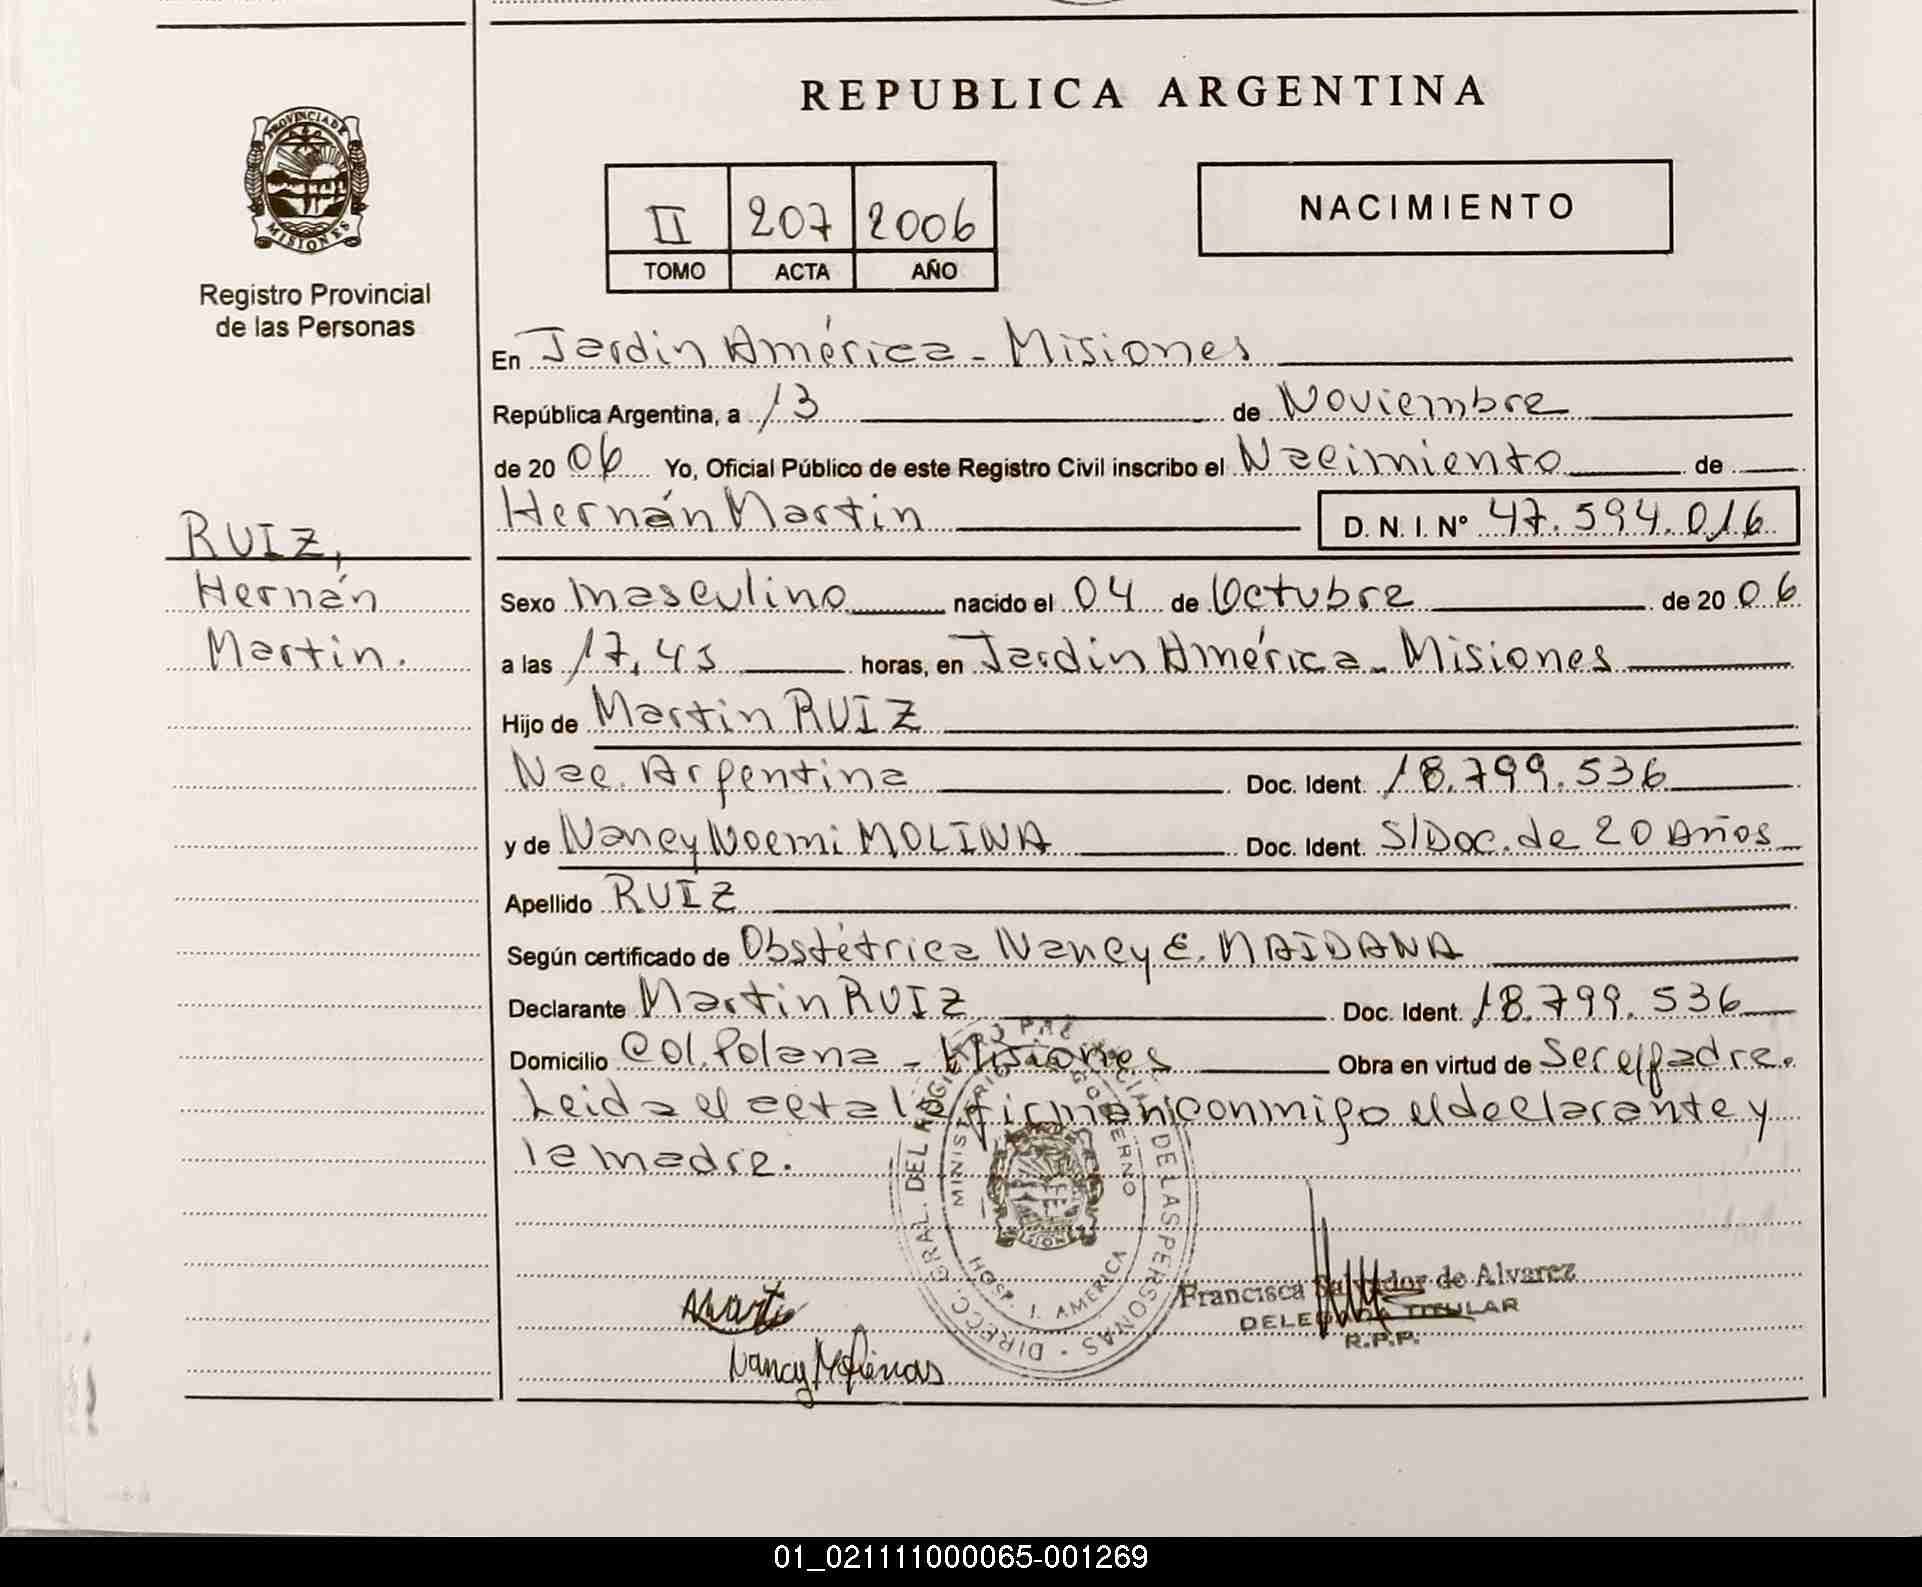 REPUBLICA ARGENTINA
PROVINCIA DE
MISIONES
Registro Provincial
de las Personas
II 207 2006
TOMO ACTA AÑO
NACIMIENTO
En Jardin América - Misiones
República Argentina, a 13 de Noviembre
de 20 06 Yo, Oficial Público de este Registro Civil inscribo el Nacimiento de
Hernán Martin D. N. I. Nº 47.594.016
RUIZ,
Hernán
Martin.
Sexo Masculino nacido el 04 de Octubre de 20 06
a las 17,45 horas, en Jardin América - Misiones
Hijo de Martin RUIZ
Nac. Argentina Doc. Ident. 18.799.536
y de Nancy Noemi MOLINA Doc. Ident. S/Doc. de 20 Años
Apellido RUIZ
Según certificado de Obstétrica Nancy E. MAIDANA
Declarante Martin RUIZ Doc. Ident. 18.799.536
Domicilio Col. Polana - Misiones Obra en virtud de Ser el padre.
Leida el acta la firman conmigo el declarante y
la madre.
DIRECC. GRAL. DEL REGISTRO PROVINCIAL DE LAS PERSONAS
MINISTERIO DE GOBIERNO
MISIONES
HOSP. J. AMERICA
Francisca Salvador de Alvarez
DELEGADA TITULAR
R.P.P.
Nancy
01_021111000065-001269